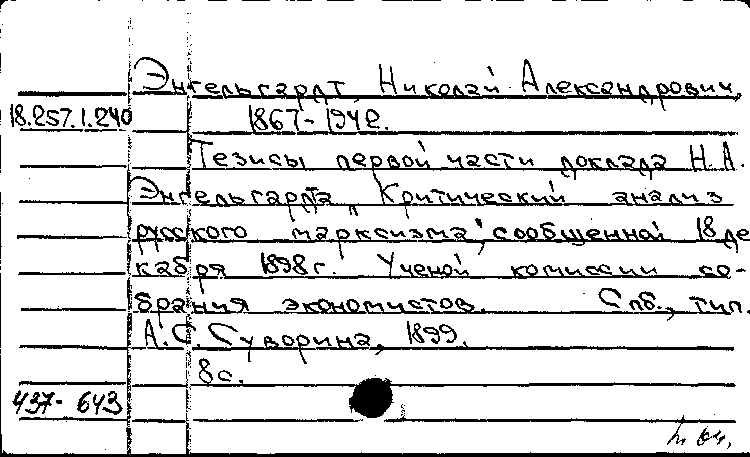 Энгельгардт, Николай Александрович,
18.257.1.240 1867-1942.
Тезисы первой части доклада Н.А.
Энгельгардта „Критический анализ
русского марксизма", сообщенной 18 де
кабря 1898 г. Ученой комиссии со-
брания экономистов. Спб., тип.
А.С. Суворина, 1899.
8с.
437-643